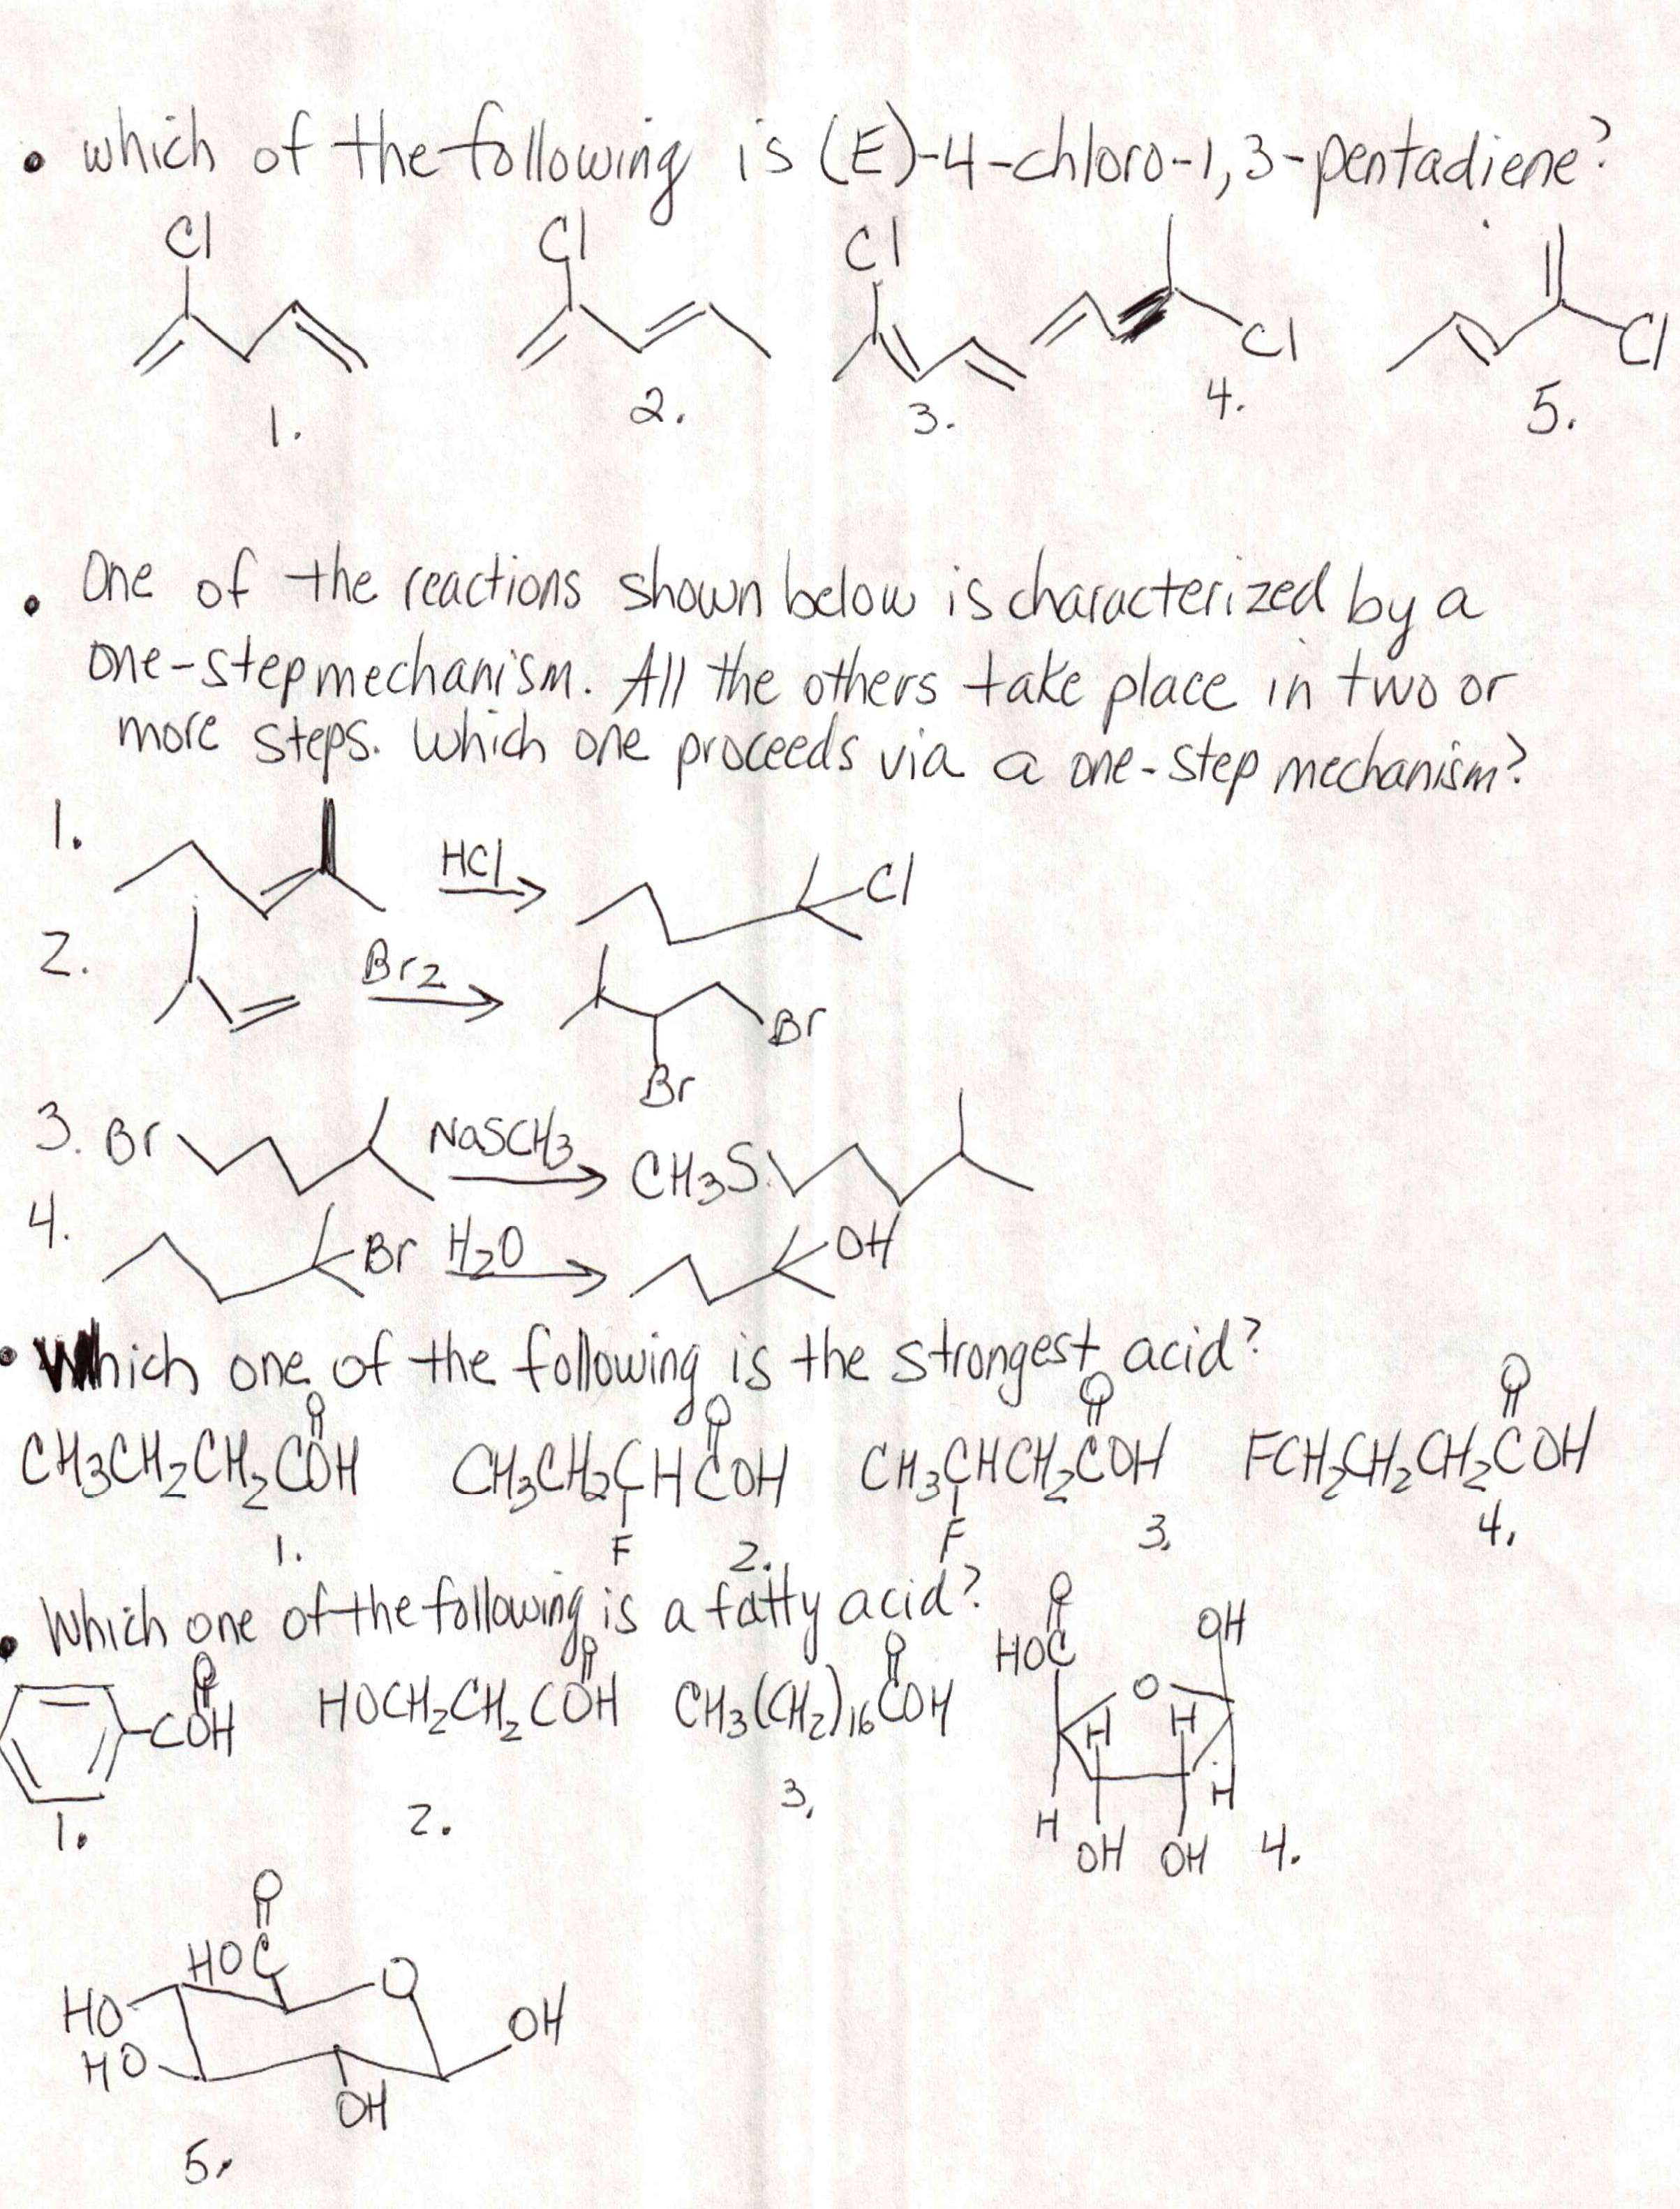 • which of the following is (E)-4-chloro-1,3-pentadiene?
Cl Cl Cl Cl Cl
1. 2. 3. 4. 5.
• One of the reactions shown below is characterized by a
one-step mechanism. All the others take place in two or
more steps. Which one proceeds via a one-step mechanism?
1. HCl Cl
2. Br2 Br
Br
3. Br NaSCH3 CH3S
4. Br H2O OH
• Which one of the following is the strongest acid?
O O O O
CH3CH2CH2COH CH3CH2CHCOH CH3CHCH2COH FCH2CH2CH2COH
F F
1. 2. 3. 4.
• Which one of the following is a fatty acid?
O O O O OH
HOC O
COH HOCH2CH2COH CH3(CH2)16COH H H
H H
OH OH
1. 2. 3. 4.
O
HOC O
HO OH
HO
OH
5.